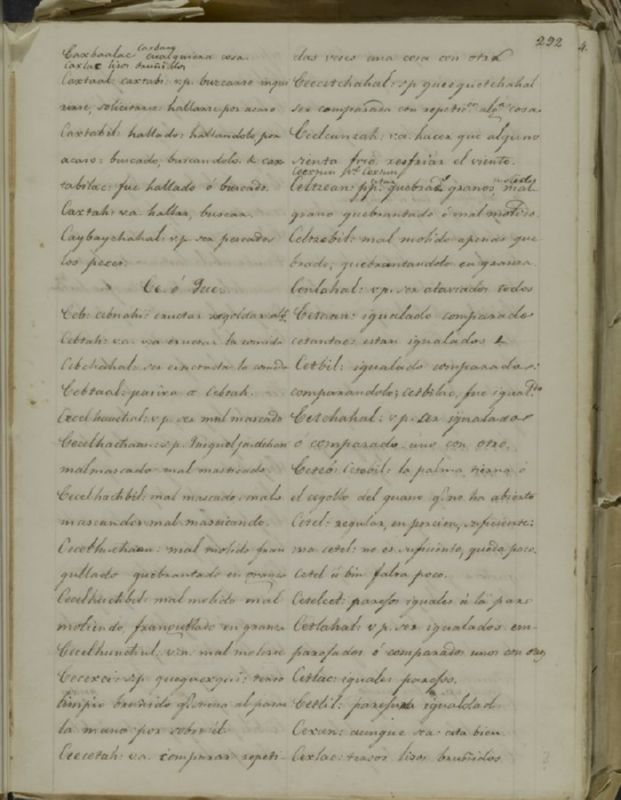 292
Caxbaalac cualquiera cosa.
Caxlac lisos bruñidos
Caxtaal: caxtabi: v.p. buscarse inqui
rirse, solicitarse: hallarse por acaso
Caxtabil: hallado: hallandolo por
acaso: buscado, buscandolo. & cax
tabilac: fue hallado ó buscado.
Caxtah: v.a. hallar, buscar.
Caybaychahal: v.p. ser pescados
los peces.
Ce. ó Que.
Ceb: cebnahi: eructar regoldar
Cebtah: v.a. va eructar la comida
Cebchahal: ser eructada la comida
Cebtaal: pasiva a Cebtah.
Cecelhauchal: v.p. ser mal mascado
Cecelhachaan: v.p.
mal mascado mal masticado.
Cecelhachbil: mal mascado: malo
mascandor mal masticando.
Cecelhuchaan: mal molido fran
gullado quebrantado en
Cecelhuchbil: mal molido mal
moliendo, franqullado en granza
Cecelhunchul. v.n. mal molerse
Cecexci: s.p. quequexqui: terso
limpio bruñido q.e suena al pasar
la mano por sobre él.
Cecetah: v.a. comparar repeti-
das veces una cosa con otra
Cecetchahal: s.p. quequetchahal
ser comparada con repetic.on alg.a cosa
Ceelcunzah: v.a. hacer que alguno
sienta frio, resfriar el viento.
Celtzean: p.p. quebrad granos mal
grano quebrantado ó mal molido.
Celtzebil: mal molido apenas que
brado; quebrantandolo en granza.
Cenlahal: v.p. ser ataviados todos
Cetaan: igualado comparado
cetantac estan igualados
Cetbil: igualado comparado:
comparandolo; cetbilac, fue igual.do
Cetchahal: v.p. ser igualado
ó comparado uno con otro.
la palma tierna ó
el cogollo del guano q.e no ha abierto
Cetel: regular, en porcion, suficiente:
ma cetel: no es suficiente, queda poco.
Cetel ú bin falta poco.
Cetelcet: parejos iguales á la par
Cetlahal: v.p. ser igualados em-
parejados ó comparados unos con otros
Cetlac: iguales parejos.
Cetlil: parejura igualdad
Cexan: aunque sea: esta bien
Cexlac: tersos lisos bruñidos